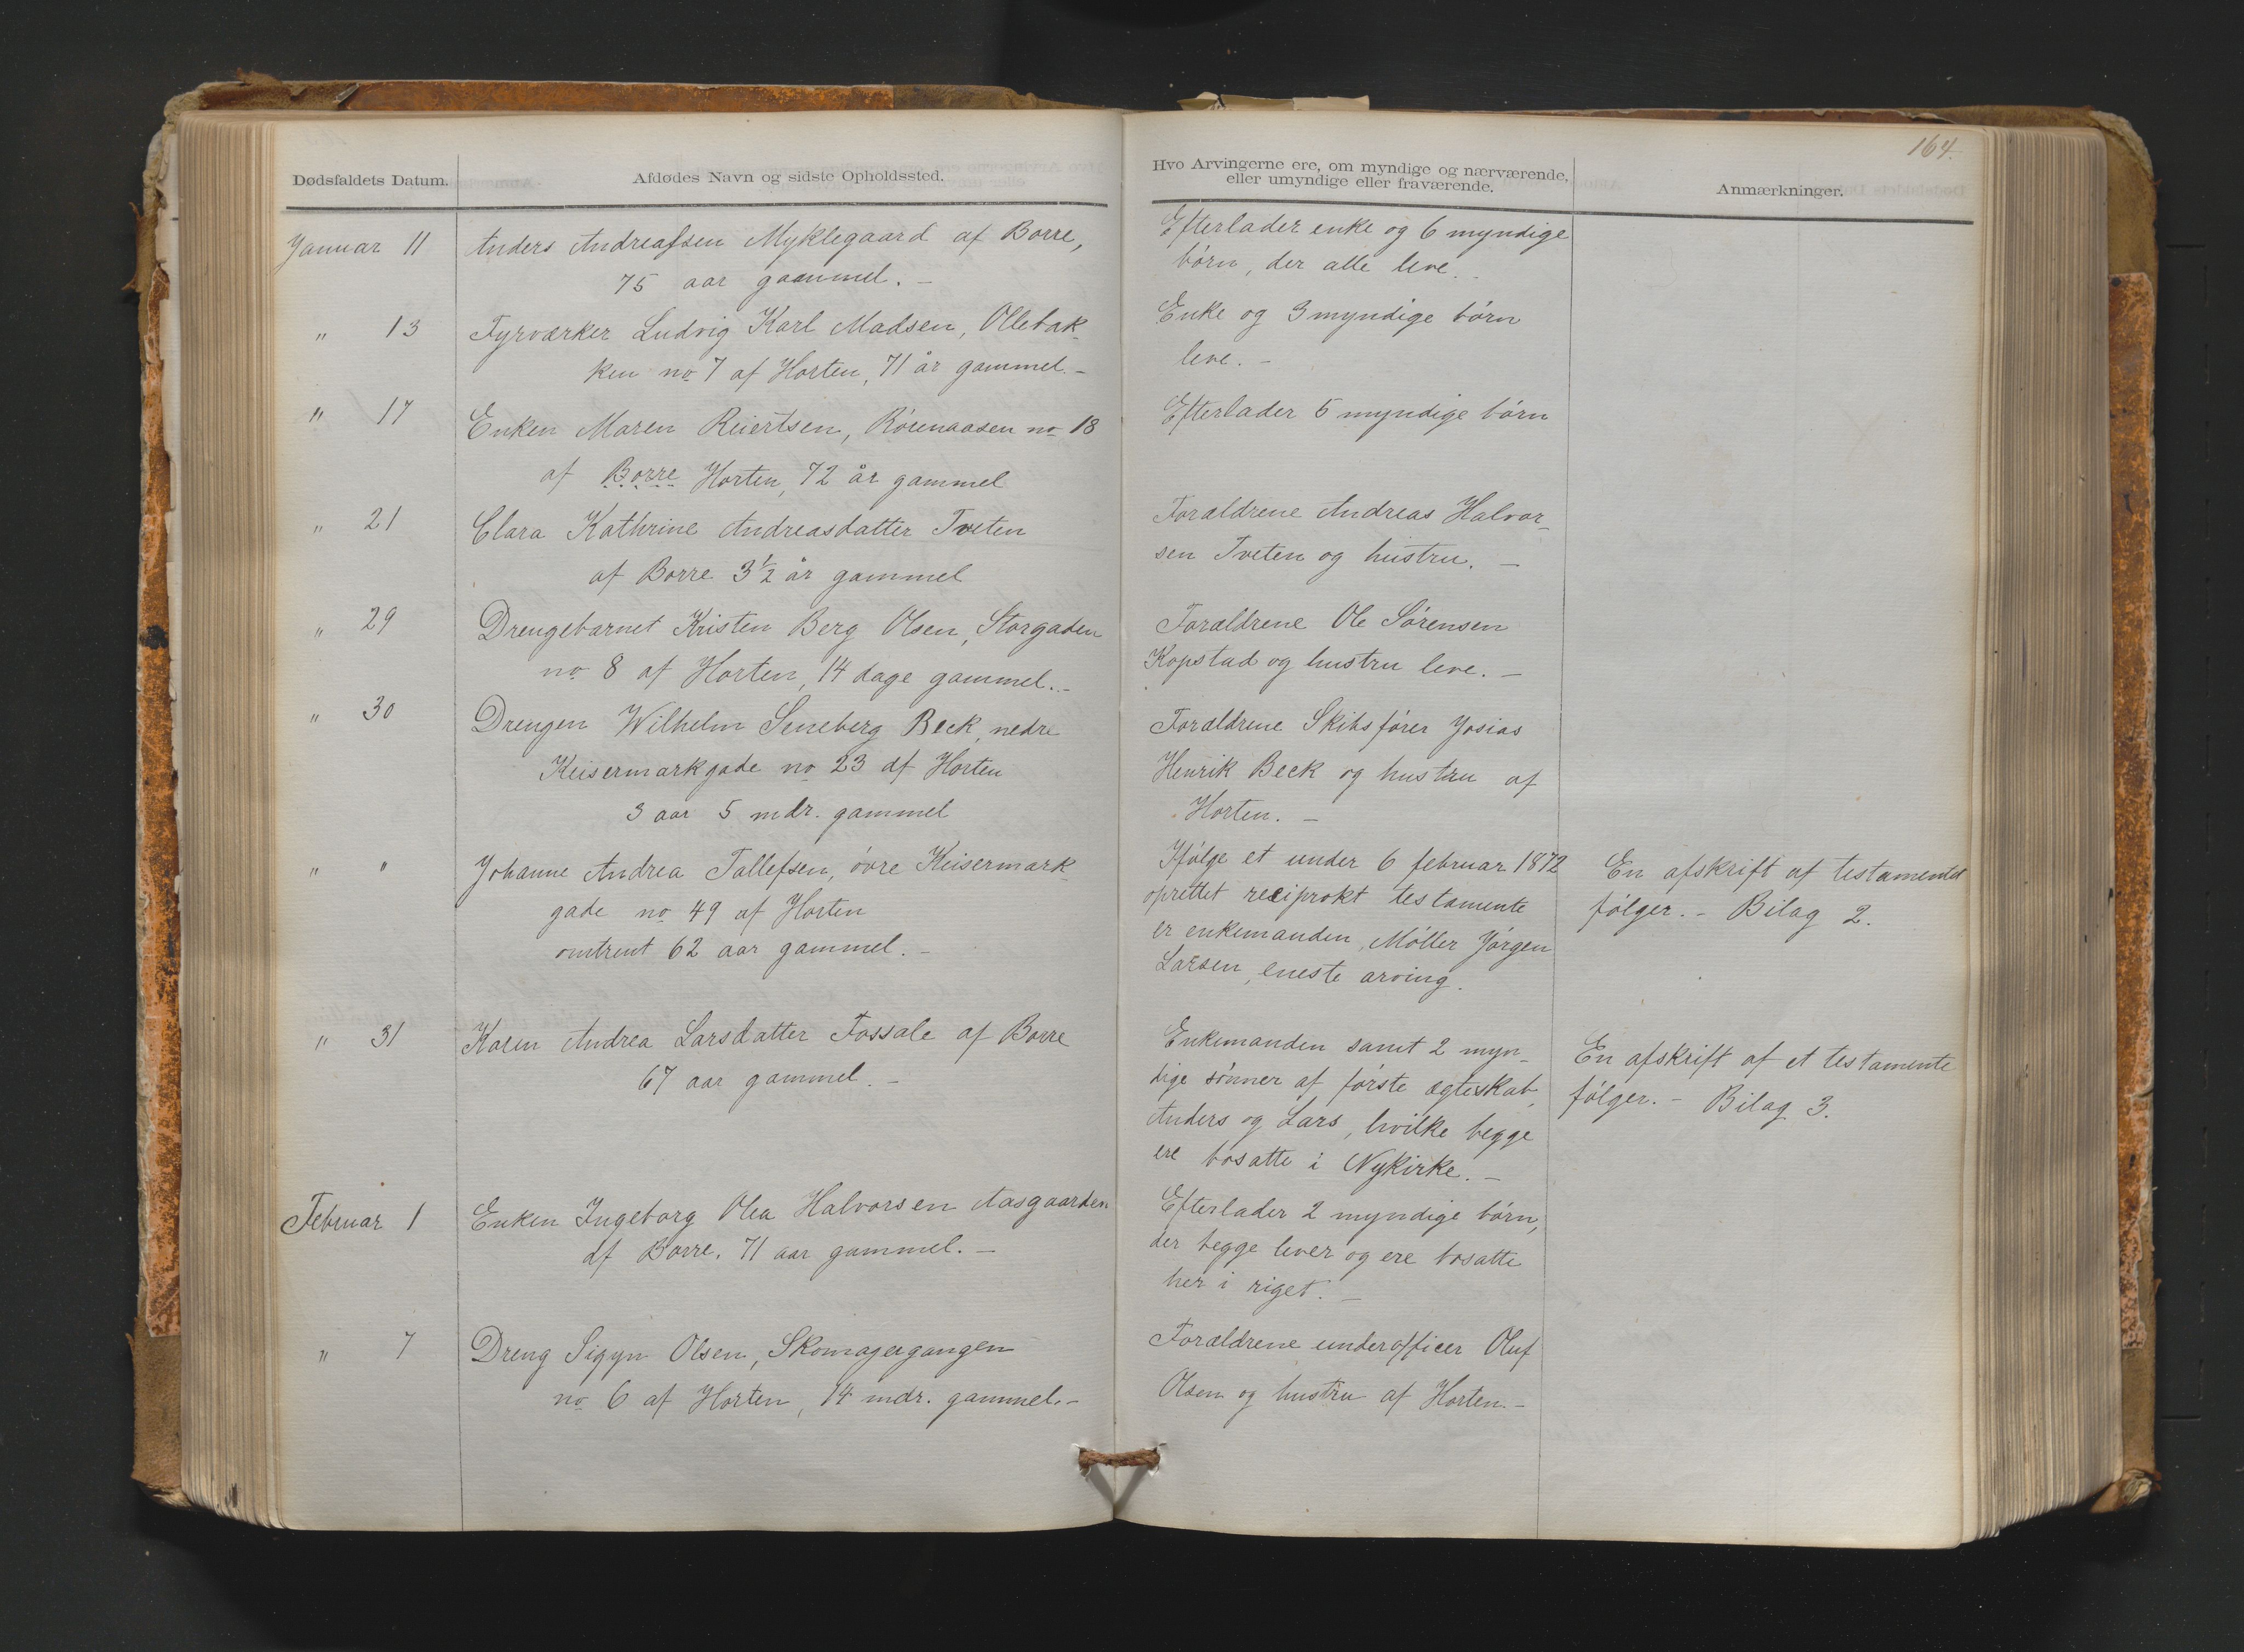 164.
Dødsfaldets Datum.
Afdødes Navn og sidste Opholdssted.
Hvo Arvingerne ere, om myndige og nærværende,
eller umyndige eller fraværende.
Anmærkninger.
Januar 11
Anders Andreaſsen Myklegaard af Borre,
75 aar gaammel. –
Efterlader enke og 6 myndige
børn, der alle leve.
" 13
Fyrværker Ludvig Karl Madsen, Ollebak-
ken no 7 af Horten, 71 år gammel. –
Enke og 3 myndige børn
leve. –
" 17
Enken Maren Reiertsen, Rörenaasen no 18
af Borre Horten, 72 år gammel
Efterlader 5 myndige børn
" 21
Clara Kathrine Andreasdatter Tveten
af Borre 3½ år gammel
Forældrene Andreas Halvor-
sen Tveten og hustru. –
" 29
Drengebarnet Kristen Berg Olsen, Storgaden
no 8 af Horten, 14 dage gammel. –
Forældrene Ole Sörensen
Kopstad og hustru leve. –
" 30
Drengen Wilhelm Seneberg Beck, nedre
Keisermarkgade no 23 af Horten
3 aar 5 mdr. gammel
Forældrene Skibsfører Josias
Henrik Beck og hustru af
Horten. –
" "
Johanne Andrea Tallefsen, övre Keisermark-
gade no 49 af Horten
omtrent 62 aar gammel. –
Ifølge et under 6 februar 1872
oprettet reciprokt testamente
er enkemanden, Møller Jørgen
Larsen, eneste arving.
En afskrift af testamentet
følger. – Bilag 2.
" 31
Karen Andrea Larsdatter Fossale af Borre
67 aar gammel. –
Enkemanden samt 2 myn-
dige sønner af første ægteskab,
Anders og Lars, hvilke begge
ere bosatte i Nykirke. –
En afskrift af et testamente
følger. – Bilag 3.
Februar 1
Enken Ingeborg Olea Halvorsen Aasgaarden
af Borre, 71 aar gammel. –
Efterlader 2 myndige børn,
der begge lever og ere bosatte
her i riget. –
" 7
Dreng Sigyn Olsen, Skomagergangen
no 6 af Horten, 14 mdr. gammel. –
Forældrene underofficer Oluf
Olsen og hustru af Horten. –